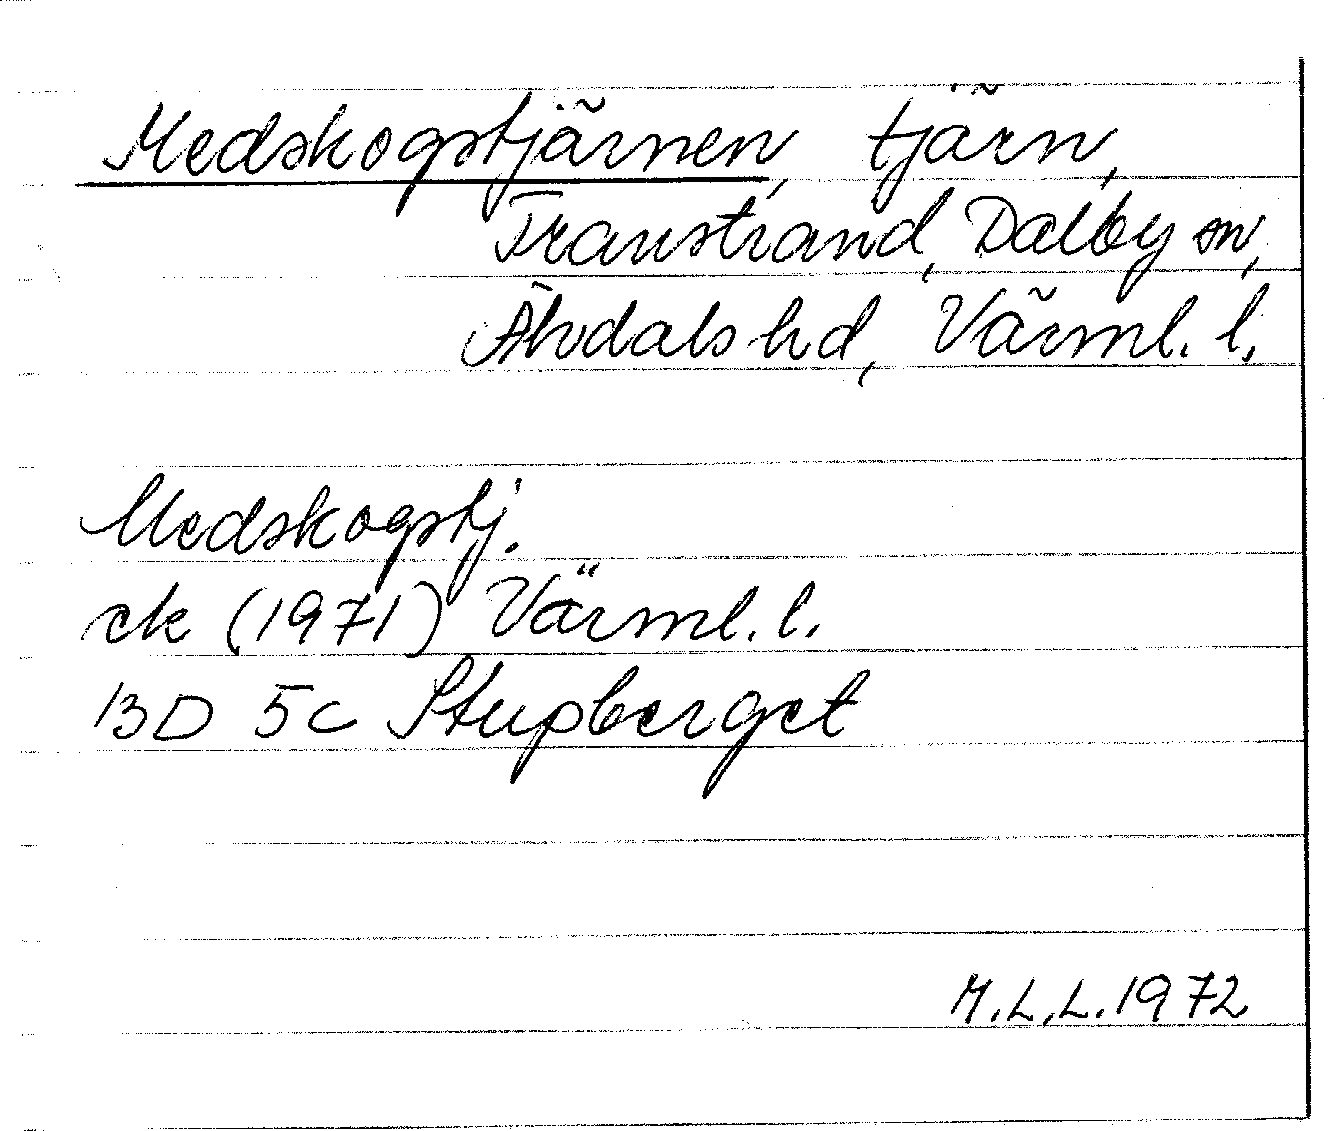 Medskogstjärnen, tjärn,
Transtrand, Dalby sn,
Älvdals hd, Värml. l.
Medskogstj.
ek (1971) Värml. l.
13D 5c Stupberget
M.L.L. 1972